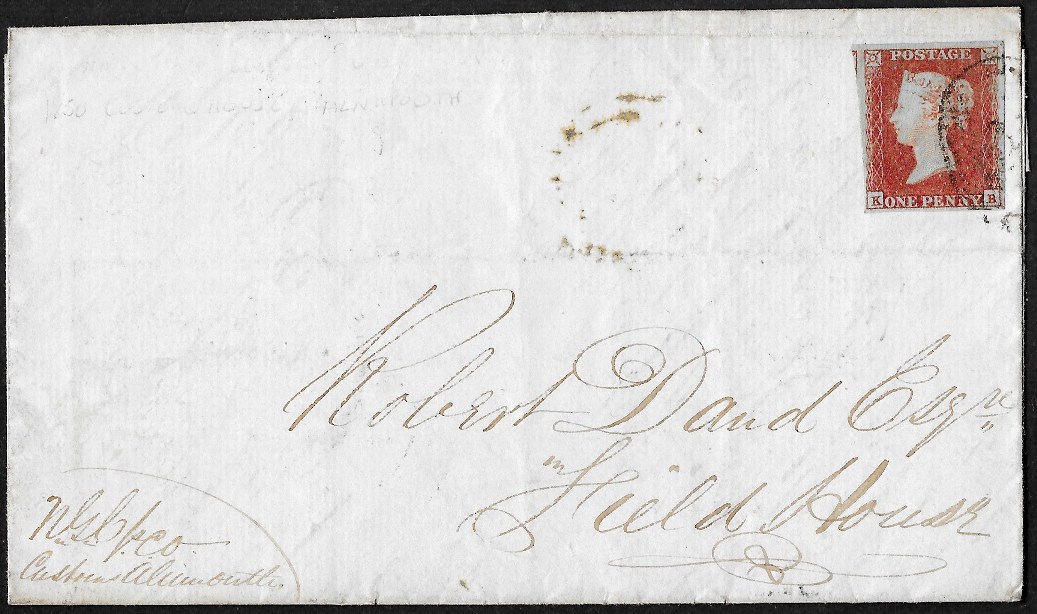 1850 CUSTOM HOUSE, ALNMOUTH
POSTAGE
K ONE PENNY B
Robert Dand Esqre
Field House
Customs Alnmouth